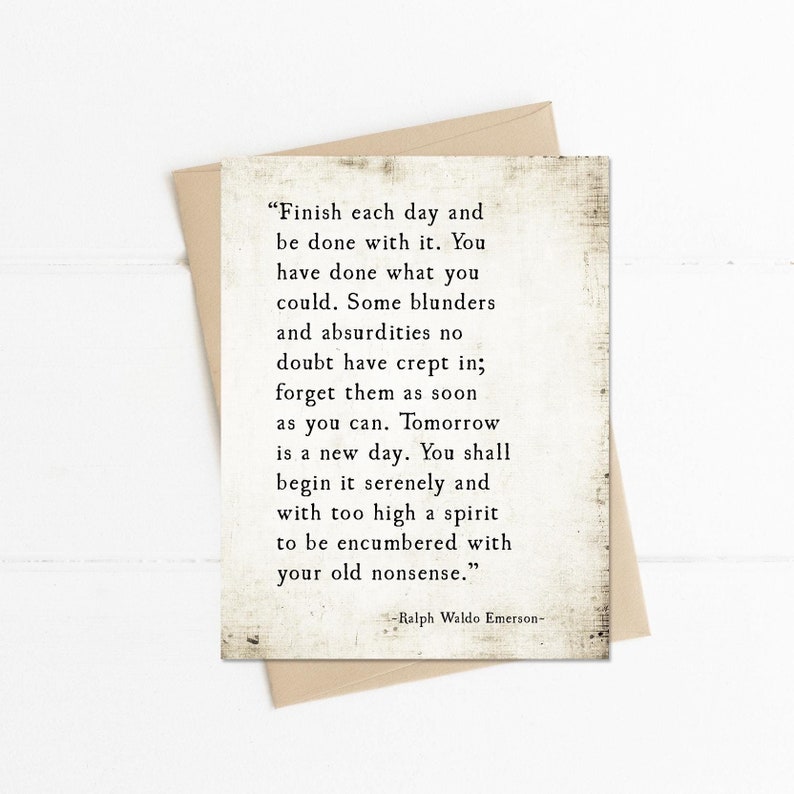 “Finish each day and
be done with it. You
have done what you
could. Some blunders
and absurdities no
doubt have crept in;
forget them as soon
as you can. Tomorrow
is a new day. You shall
begin it serenely and
with too high a spirit
to be encumbered with
your old nonsense.”
~Ralph Waldo Emerson~